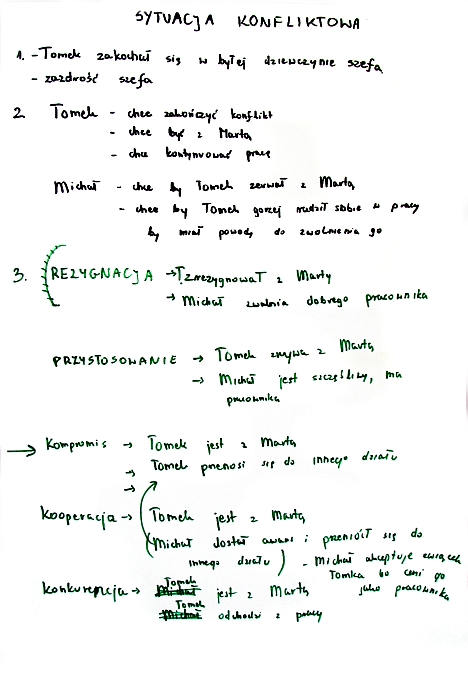 SYTUACJA KONFLIKTOWA
1. - Tomek zakochał się w byłej dziewczynie szefa
- zazdrość szefa
2. Tomek - chce zakończyć konflikt
- chce być z Martą
- chce kontynuować pracę
Michał - chce by Tomek zerwał z Martą
- chce by Tomek gorzej radził sobie w pracy
by miał powody do zwolnienia go
3. REZYGNACJA → T. zrezygnował z Marty
→ Michał zwalnia dobrego pracownika
PRZYSTOSOWANIE → Tomek zrywa z Martą
→ Michał jest szczęśliwy, ma
pracownika
→ Kompromis → Tomek jest z Martą
→ Tomek przenosi się do innego działu
→
Kooperacja → Tomek jest z Martą
(Michał dostał awans i przeniósł się do
innego działu) - Michał akceptuje związek
Tomka bo ceni go
jako pracownika
Konkurencja → Tomek jest z Martą
Tomek odchodzi z pracy